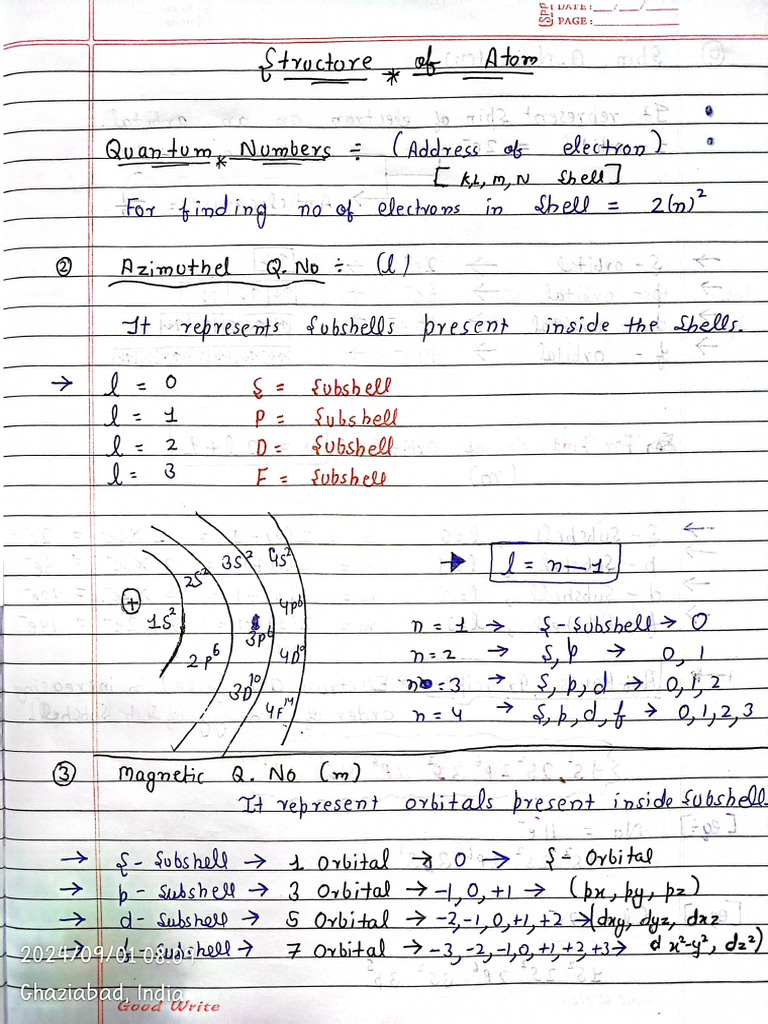 SPP DATE: __/__/__
PAGE: 
Structore of Atom
Quantum Numbers ÷ (Address of electron)
[K,L,M,N Shell]
For finding no of electrons in Shell = 2(n)²
② Azimuthel Q.No ÷ (l)
It represents Subshells present inside the Shells.
→ l = 0 S = Subshell
l = 1 P = Subshell
l = 2 D = Subshell
l = 3 F = Subshell
+ 1S² 2S² 2P⁶ 3S² 3P⁶ 3D¹⁰ 4S² 4P⁶ 4D¹⁰ 4F¹⁴
→ l = n-1
n = 1 → S-Subshell → 0
n = 2 → S, p → 0, 1
n = 3 → S, p, d → 0, 1, 2
n = 4 → S, p, d, f → 0, 1, 2, 3
③ Magnetic Q. No (m)
It represent orbitals present inside Subshell
→ S - Subshell → 1 Orbital → 0 → S - Orbital
→ p - Subshell → 3 Orbital → -1, 0, +1 → (px, py, pz)
→ d - Subshell → 5 Orbital → -2, -1, 0, +1, +2 → (dxy, dyz, dxz
→ f - Subshell → 7 Orbital → -3, -2, -1, 0, +1, +2, +3 → d x²-y², dz²)
2024/09/01 08:
Ghaziabad, India
Good Write